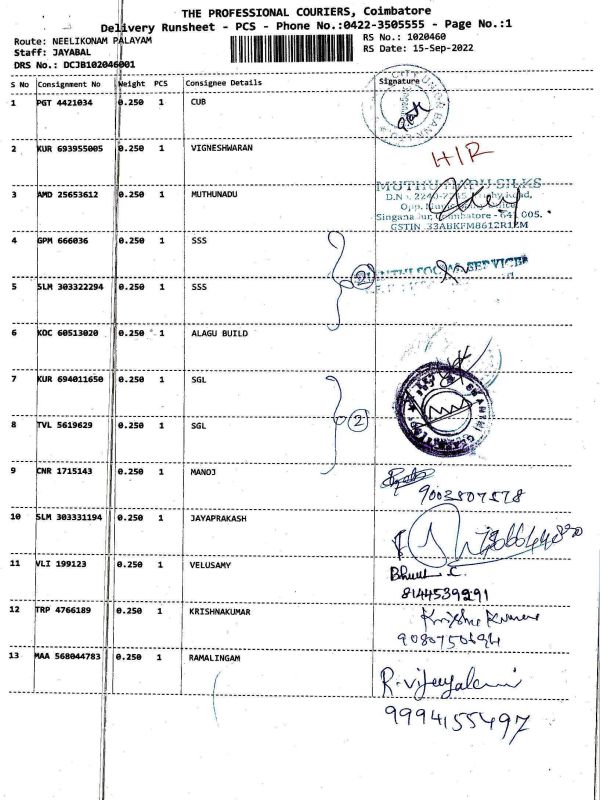 THE PROFESSIONAL COURIERS, Coimbatore
Delivery Runsheet - PCS - Phone No.:0422-3505555 - Page No.:1
Route: NEELIKONAM PALAYAM
RS No.: 1020460
Staff: JAYABAL
RS Date: 15-Sep-2022
DRS No.: DCJB102046001
S No Consignment No Weight PCS Consignee Details Signature
1 PGT 4421034 0.250 1 CUB
2 KUR 693955005 0.250 1 VIGNESHWARAN
HIR
3 AMD 25653612 0.250 1 MUTHUNADU
MUTHU NADU SILKS
GSTIN 33ABKFM8612R1ZM
4 GPM 666036 0.250 1 SSS
2
5 SLM 303322294 0.250 1 SSS
6 KOC 60513020 0.250 1 ALAGU BUILD
7 KUR 694011650 0.250 1 SGL
2
8 TVL 5619629 0.250 1 SGL
9 CNR 1715143 0.250 1 MANOJ
9003507578
10 SLM 303331194 0.250 1 JAYAPRAKASH
11 VLI 199123 0.250 1 VELUSAMY
8144539291
12 TRP 4766189 0.250 1 KRISHNAKUMAR
Krishna Kumar
13 MAA 568044783 0.250 1 RAMALINGAM
R. Vijeyalaxmi
9994155497